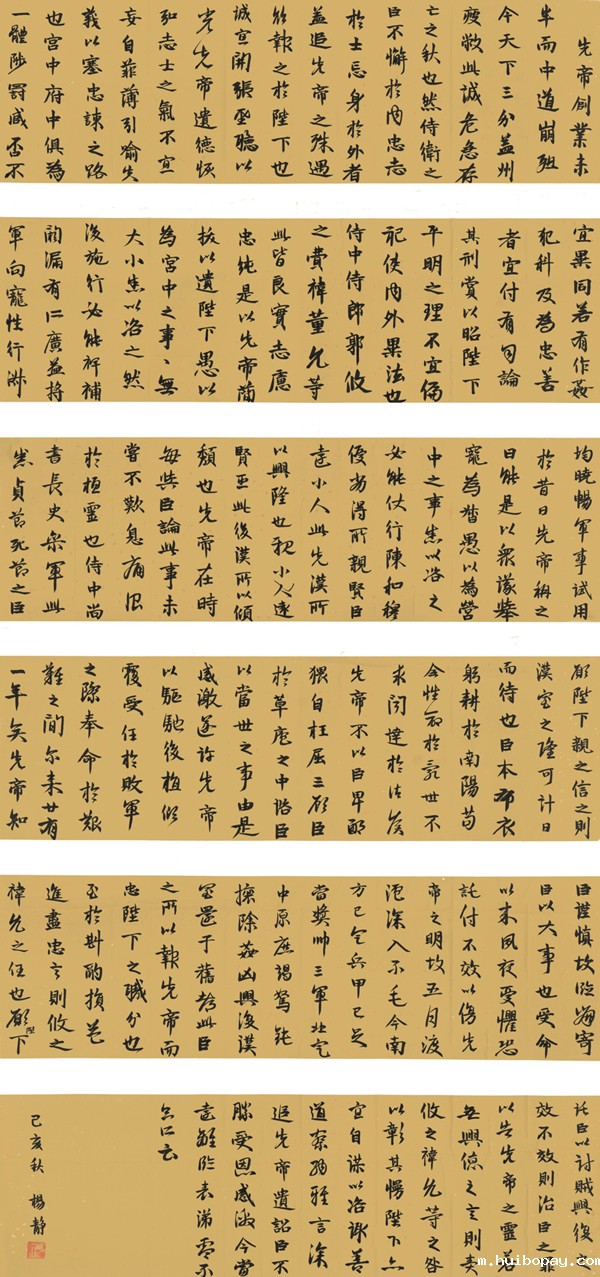 先帝創業未
半而中道崩殂
今天下三分益州
疲敝此誠危急存
亡之秋也然侍衛之
臣不懈於內忠志
於士忘身於外者
蓋追先帝之殊遇
欲報之於陛下也
誠宜開張聖聽以
光先帝遺德恢
弘志士之氣不宜
妄自菲薄引喻失
義以塞忠諫之路
也宮中府中俱為
一體陟罰臧否不
宜異同若有作姦
犯科及為忠善
者宜付有司論
其刑賞以昭陛下
平明之理不宜偏
私使內外異法也
侍中侍郎郭攸
之費禕董允等
此皆良實志慮
忠純是以先帝簡
拔以遺陛下愚以
為宮中之事、無
大小悉以咨之然
後施行必能裨補
闕漏有所廣益將
軍向寵性行淑
均曉暢軍事試用
於昔日先帝稱之
曰能是以衆議舉
寵為督愚以為營
中之事悉以咨之
必能使行陳和穆
優劣得所親賢臣
遠小人此先漢所
以興隆也親小人遠
賢臣此後漢所以傾
頹也先帝在時
每與臣論此事未
嘗不歎息痛恨
於桓靈也侍中尚
書長史參軍此
悉貞節死節之臣
願陛下親之信之則
漢室之隆可計日
而待也臣本布衣
躬耕於南陽苟
全性命於亂世不
求聞達於諸侯
先帝不以臣卑鄙
猥自枉屈三顧臣
於草廬之中諮臣
以當世之事由是
感激遂許先帝
以驅馳後值傾
覆受任於敗軍
之際奉命於艱
難之間爾來廿有
一年矣先帝知
臣謹慎故臨崩寄
臣以大事也受命
以來夙夜憂懼恐
託付不效以傷先
帝之明故五月渡
瀘深入不毛今南
方已定兵甲已足
當獎帥三軍北定
中原庶竭駑鈍
攘除姦凶興復漢
室還于舊都此臣
之所以報先帝而
忠陛下之職分也
至於斟酌損益
進盡忠言則攸之
禕允之任也願陛下
託臣以討賊興復之
效不效則治臣之罪
以告先帝之靈若
無興德之言則責
攸之禕允等之咎
以彰其慢陛下亦
宜自謀以咨諏善
道察納雅言深
追先帝遺詔臣不
勝受恩感激今當
遠離臨表涕零不
知所云
己亥秋 楊靜
m.huibopay.com